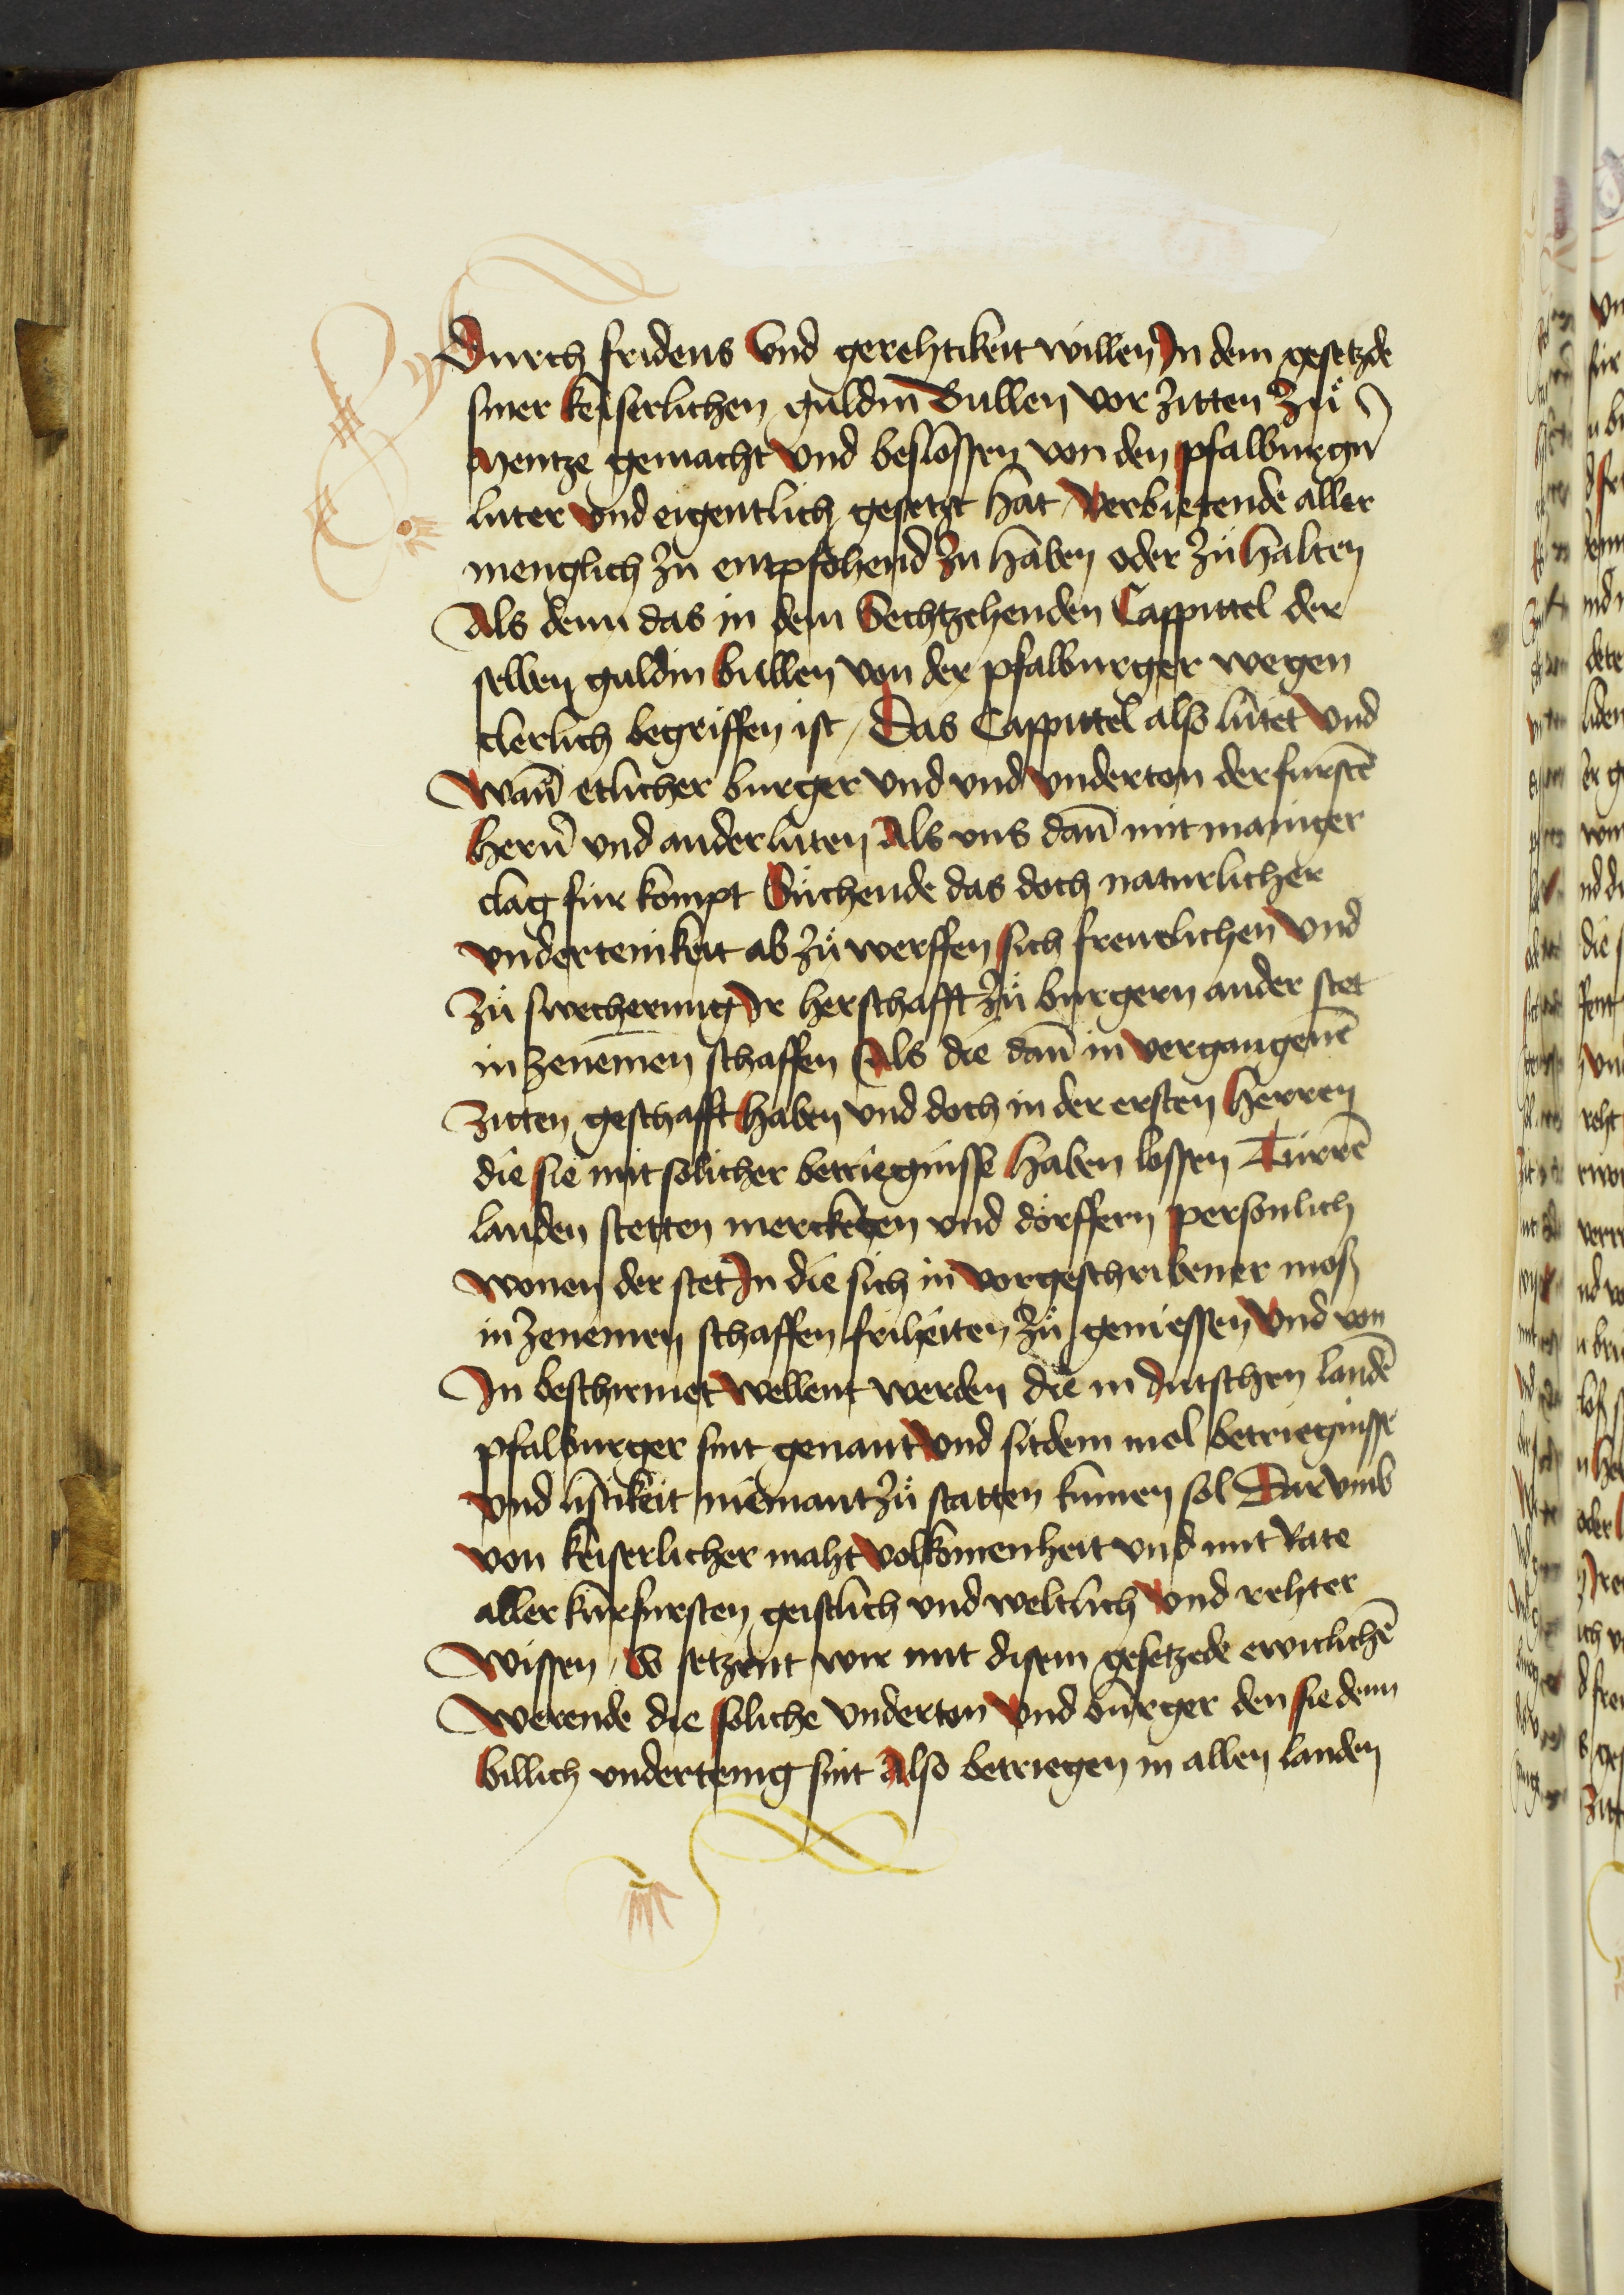 Durch fridens Vnd gerehtikeit willen In dem gesetzde
siner keiserlichen guldin Bullen vor zitten Zuͦ
Mentze gemacht vnd beslossen von den pfalburgern̄
luter vnd eigentlich gesetzt hat / Verbietende aller
menglich zu entpfohend Zu haben oder zu halten
Als denn das in dem Sechtzehenden Cappittel der
selben guldin bullen von der pfalburger wegen
clerlich begriffen ist / Das Cappittel also lutet Vnd
Wan̄ etlicher burger vnd vnd vnderton der furstē
hern̄ vnd ander luten Als vns dan̄ mit maniger
clag fur kompt Suchende das doch naturlicher
vndertenikeit ab zuͦ werffen sich freuelichen Vnd
Zuͦ swecherung Ir herschafft Zuͦ burgern ander stet
in zenemen schaffen Als die dan̄ in vergangenē
Zitten geschafft haben vnd doch in der ersten herren
die sie mit solicher betriegnisse haben lossen Turrē
landen stetten merckten vnd dorffern personlich
wonen der stet In die sich in vorgeschribener moß
in zenemen schaffen friheiten Zuͦ geniessen Vnd von
In beschirmet wellent werden die in dutschen landē
pfalburger sint genant Vnd sitdem mol betriegnisse
vnd listikeit niemant zuͦ statten kumen sol Dar vmb
von keiserlicher maht volkomenheit vnd mit Rate
aller kurfursten geistlich vnd weltlich Vnd rehter
Wissen / So setzent wir mit disem gesetzede ewiclichē
Werende die soliche Vnderton Vnd burger den sie denn
billich vndertenig sint Also betriegen in allen landen